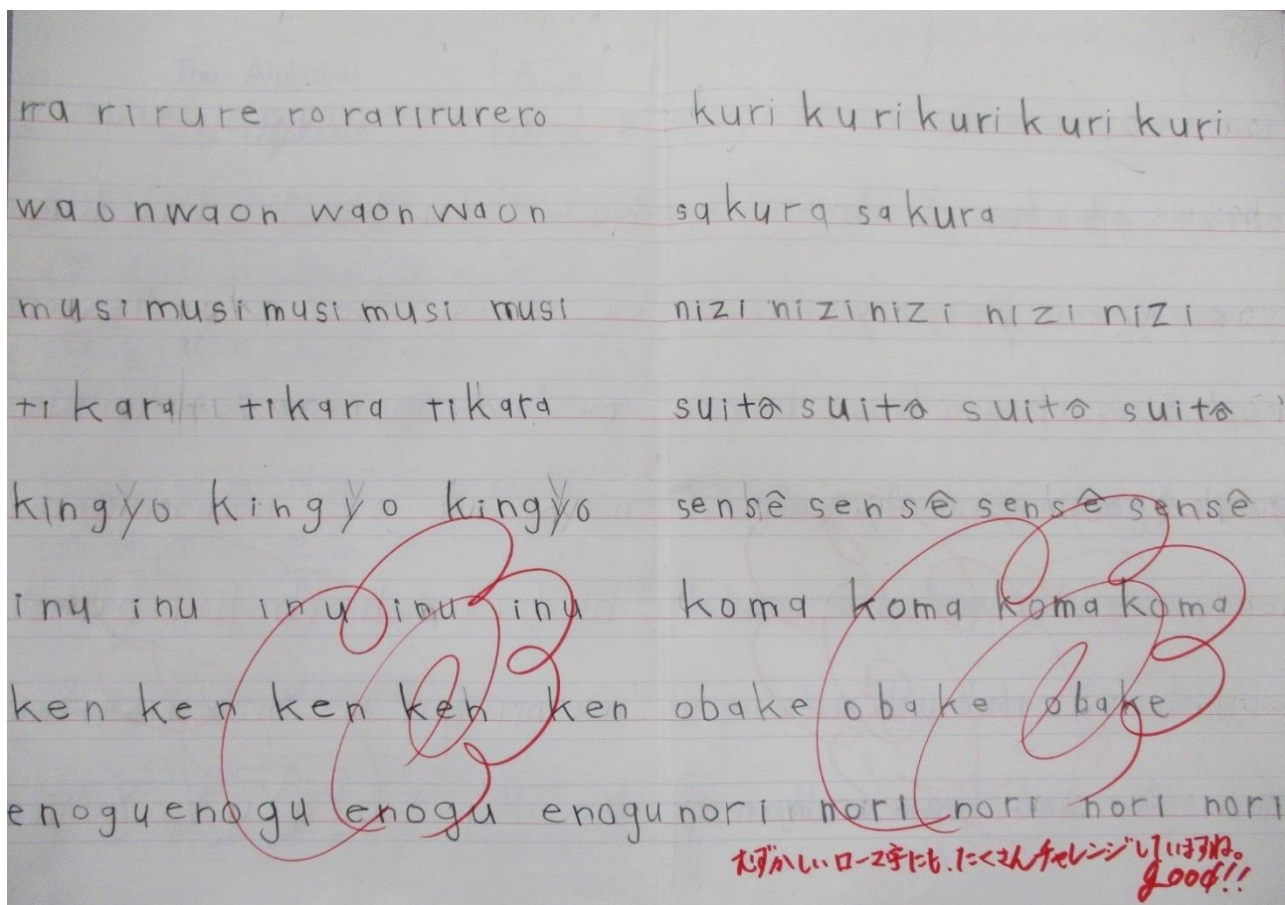 ra rirure ro rarirurero
waonwaon waon waon
musimusimusi musi musi
tikara tikara tikara
kingyo kingyo kingyo
inu inu inu inu inu
ken ken ken ken ken
enoguenogu enogu enogu
kuri kurikurikuri kuri
sakura sakura
nizi nizinizi nizi nizi
suitô suitô suitô suitô
sensê sensê sensê sensê
koma koma koma koma
obake obake obake
nori nori nori nori nori
むずかしいローマ字にも、たくさんチャレンジしていますね。
good!!